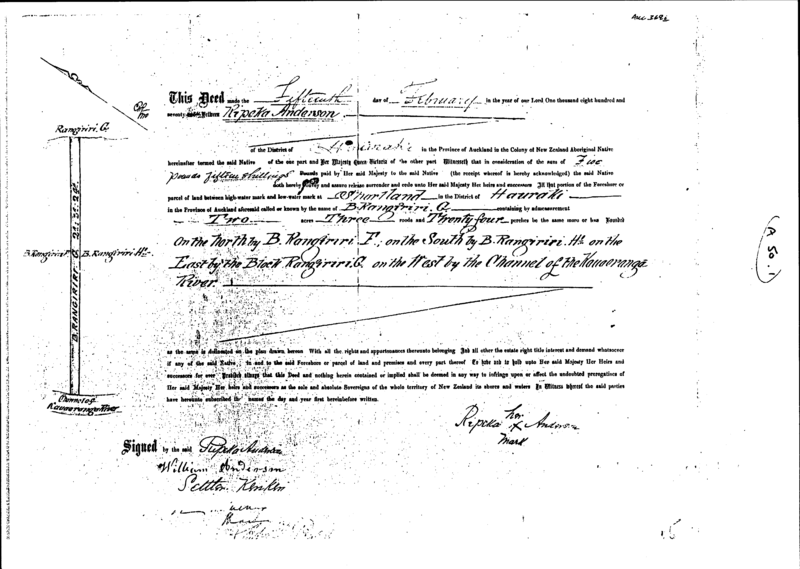 Auc 368½
This Deed made the Fifteenth day of February in the year of our Lord One thousand eight hundred and
seventy Between Ripeka Anderson
of the District of Hauraki in the Province of Auckland in the Colony of New Zealand Aboriginal Native
hereinafter termed the said Native of the one part and Her Majesty Queen Victoria of the other part Witnesseth that in consideration of the sum of Five
pounds fifteen shillings Pounds paid by Her said Majesty to the said Native (the receipt whereof is hereby acknowledged) the said Native
doth hereby convey and assure release surrender and cede unto Her said Majesty Her Heirs and successors All that portion of the Foreshore or
parcel of land between high-water mark and low-water mark at Shortland in the District of Hauraki
in the Province of Auckland aforesaid called or known by the name of B. Rangiriri. G. containing by admeasurement
Two acres Three roods and Twenty four perches be the same more or less Bounded
On the North by B. Rangiriri F. on the South by B. Rangiriri. H. on the
East by the Block Rangiriri. G. on the West by the Channel of the Kauaeranga
River
as the same is delineated on the plan drawn hereon With all the rights and appurtenances thereunto belonging And all other the estate right title interest and demand whatsoever
if any of the said Native in and to the said Foreshore or parcel of land and premises and every part thereof To have and to hold unto Her said Majesty Her Heirs and
successors for ever Provided always that this Deed and nothing herein contained or implied shall be deemed in any way to infringe upon or affect the undoubted prerogatives of
Her said Majesty Her heirs and successors as the sole and absolute Sovereigns of the whole territory of New Zealand its shores and waters In Witness whereof the said parties
have hereunto subscribed names the day and year first hereinbefore written.
Ripeka her x Anderson
mark
Signed by the said Ripeka Anderson
William Anderson
Rangiriri. G.
B. Rangiriri F.
B. RANGIRIRI. G. 2a. 3r. 24p.
B. Rangiriri. H.
Channel of
Kauaeranga River
(A 50.)
15